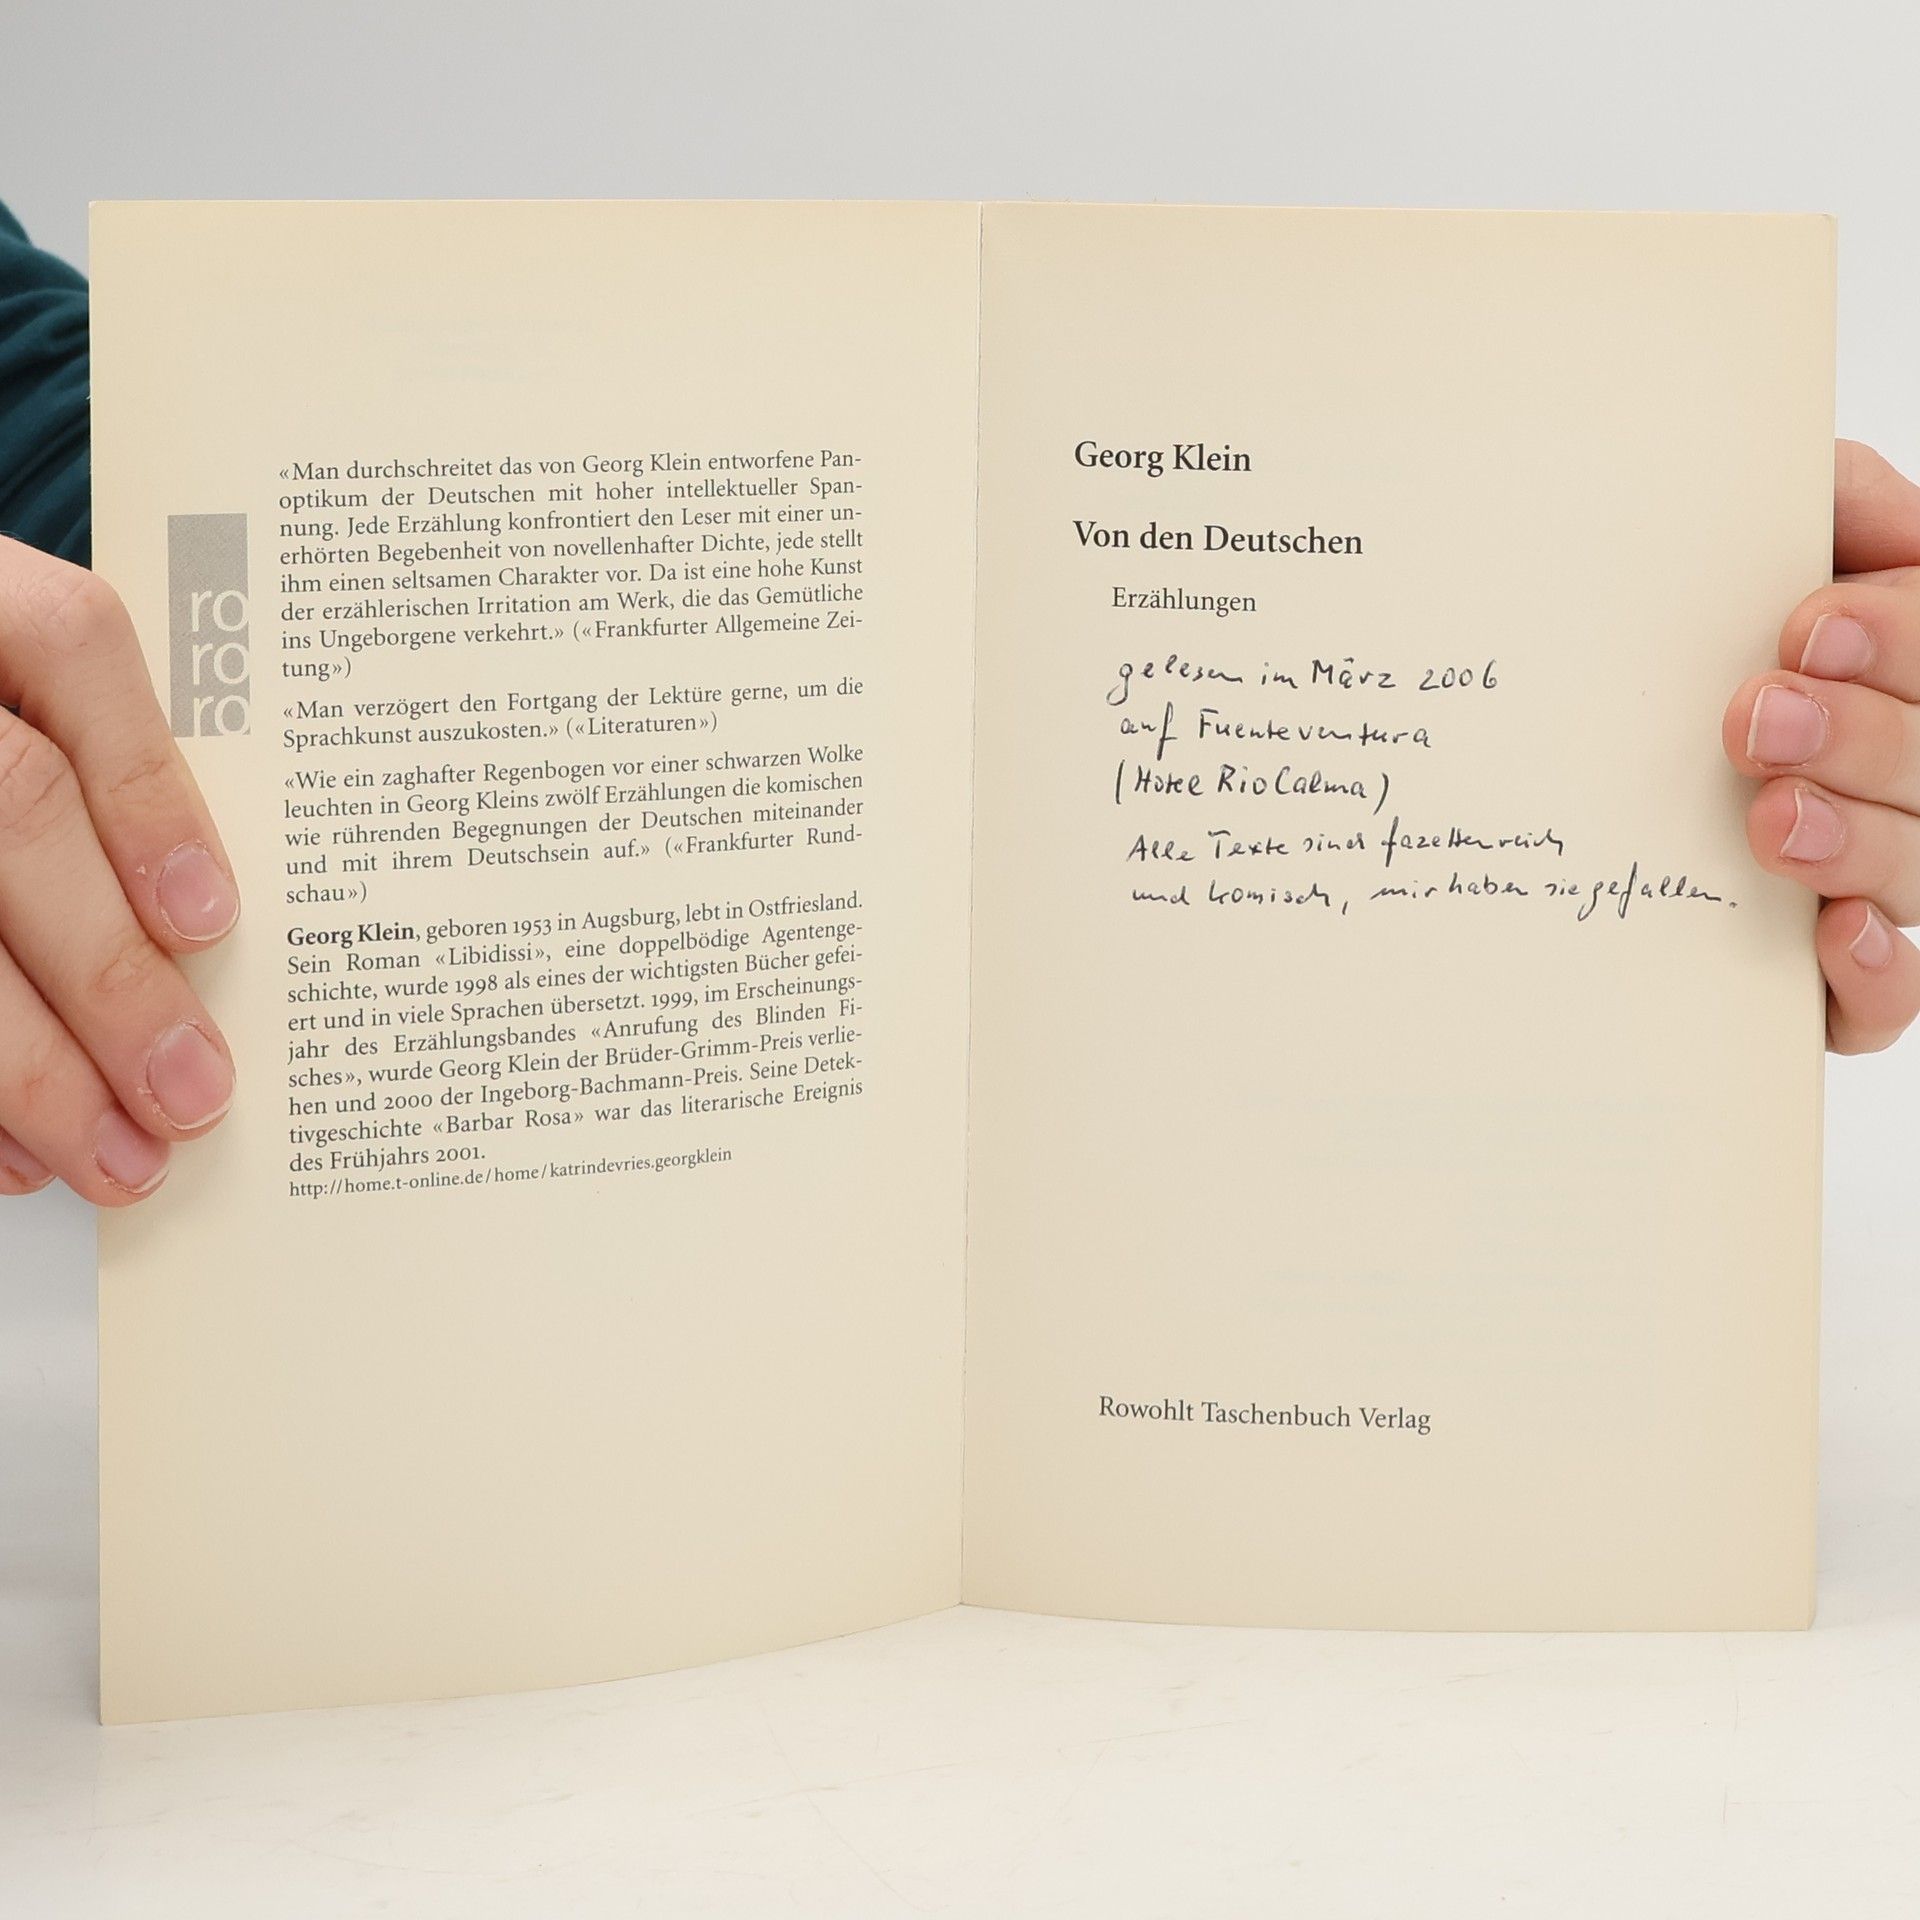 ro
ro
ro
«Man durchschreitet das von Georg Klein entworfene Pan-
optikum der Deutschen mit hoher intellektueller Span-
nung. Jede Erzählung konfrontiert den Leser mit einer un-
erhörten Begebenheit von novellenhafter Dichte, jede stellt
ihm einen seltsamen Charakter vor. Da ist eine hohe Kunst
der erzählerischen Irritation am Werk, die das Gemütliche
ins Ungeborgene verkehrt.» («Frankfurter Allgemeine Zei-
tung»)
«Man verzögert den Fortgang der Lektüre gerne, um die
Sprachkunst auszukosten.» («Literaturen»)
«Wie ein zaghafter Regenbogen vor einer schwarzen Wolke
leuchten in Georg Kleins zwölf Erzählungen die komischen
wie rührenden Begegnungen der Deutschen miteinander
und mit ihrem Deutschsein auf.» («Frankfurter Rund-
schau»)
Georg Klein, geboren 1953 in Augsburg, lebt in Ostfriesland.
Sein Roman «Libidissi», eine doppelbödige Agentenge-
schichte, wurde 1998 als eines der wichtigsten Bücher gefei-
ert und in viele Sprachen übersetzt. 1999, im Erscheinungs-
jahr des Erzählungsbandes «Anrufung des Blinden Fi-
sches», wurde Georg Klein der Brüder-Grimm-Preis verlie-
hen und 2000 der Ingeborg-Bachmann-Preis. Seine Detek-
tivgeschichte «Barbar Rosa» war das literarische Ereignis
des Frühjahrs 2001.
http://home.t-online.de/home/katrindevries.georgklein
Georg Klein
Von den Deutschen
Erzählungen
gelesen im März 2006
auf Fuenteventura
(Hotel Rio Calma)
Alle Texte sind fazettenreich
und komisch, mir haben sie gefallen.
Rowohlt Taschenbuch Verlag